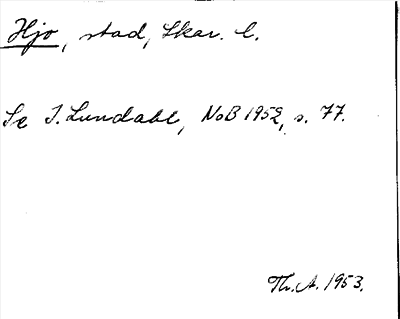 Hjo, stad, Skar. l.
Se I. Lundahl, NoB 1952, s. 77.
Th. A. 1953.